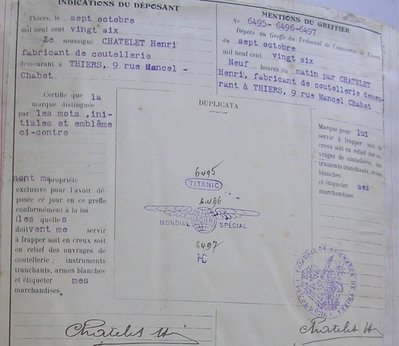 INDICATIONS DU DÉPOSANT
Thiers, le sept octobre
mil neuf cent vingt six
soussigné CHATELET Henri
fabricant de coutellerie
demeurant à THIERS, 9 rue Mancel-
Chabot
Certifie que la
marque distinguée
par les mots, ini-
tiales et emblême
ci-contre
sont ma propriété
exclusive pour l'avoir dé-
posée ce jour en ce greffe
conformément à la loi
les quelles
doivent me servir
à frapper soit en creux soit
en relief des ouvrages de
coutellerie; instruments
tranchants, armes blanches
et étiqueter mes
marchandises.
Chatelet H
DUPLICATA
6495
TITANIC
6496
MONDIAL SPÉCIAL
6497
HC
MENTIONS DU GREFFIER
N° 6495- 6496-6497
Déposés au Greffe du Tribunal de Commerce de Thiers,
du sept octobre
mil neuf cent vingt six
Neuf heures du matin par CHATELET
Henri, fabricant de coutellerie demeu-
rant à THIERS, 9 rue Mancel Chabot
Marque pour lui
servir à frapper soit en
creux soit en relief des ou-
vrages de coutellerie, ins-
truments tranchants, armes
blanches
et étiqueter ses
marchandises
Chatelet H